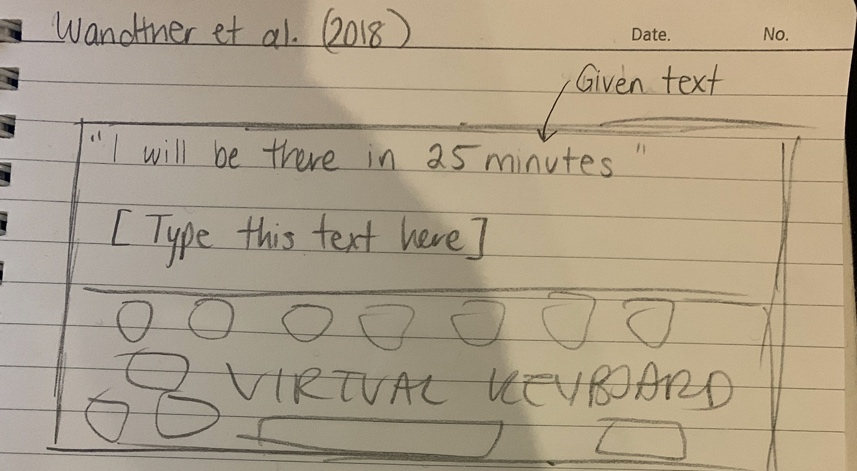 Wandtner et al. (2018)
Date.
No.
Given text
"I will be there in 25 minutes"
[Type this text here]
VIRTUAL KEYBOARD